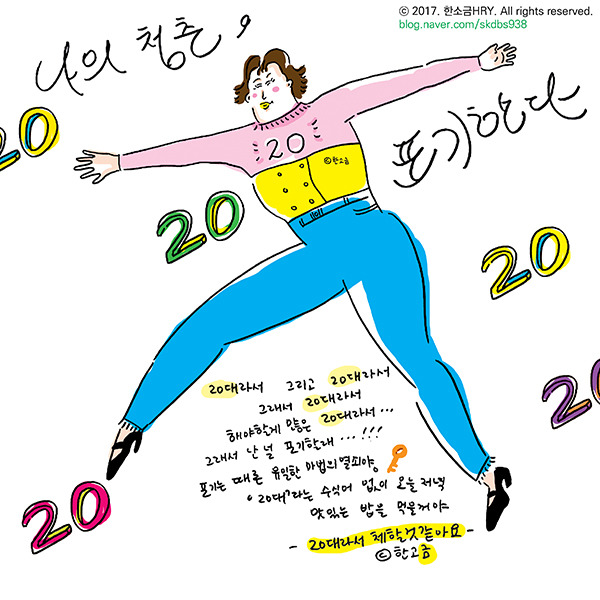 © 2017. 한소금HRY. All rights reserved.
blog.naver.com/skdbs938
나의 청춘,
포기한다
20
20
©한소금
20
20
20
20
20
20대라서 그리고 20대라서
그래서 20대라서
해야할게 많은 20대라서...
그래서 난 널 포기한래...!!!
포기는 때론 유일한 마법의 열쇠야
"20대"라는 수식어 없이 오늘 저녁
맛있는 밥을 먹을거야
- 20대라서 체할것같아요 -
©한소금